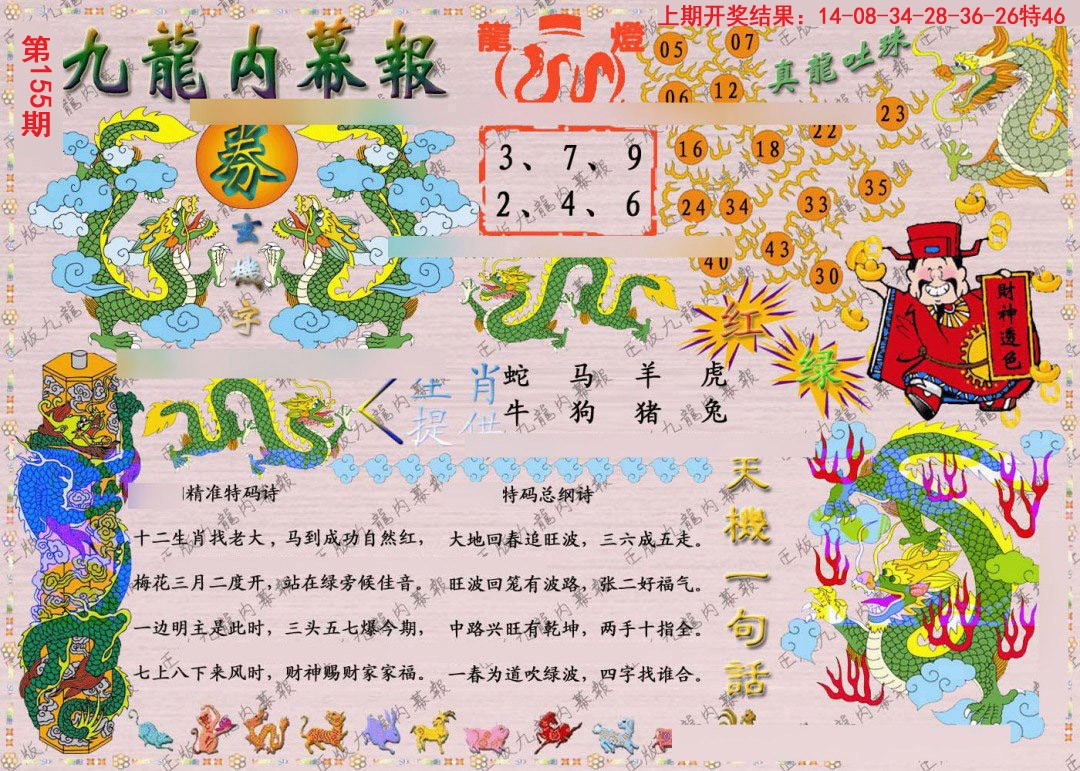 上期开奖结果：14-08-34-28-36-26特46
第155期
九龍内幕報
龍 燈
真龍吐珠
05 07
06 12
23
22
16 18
35
24 34 33
43
40 30
券
玄機字
3、7、9
2、4、6
财神透色
红
绿
生肖
提供
蛇 马 羊 虎
牛 狗 猪 兔
精准特码诗
十二生肖找老大，马到成功自然红，
梅花三月二度开，站在绿旁候佳音。
一边明主是此时，三头五七爆今期，
七上八下来风时，财神赐财家家福。
特码总纲诗
大地回春追旺波，三六成五走。
旺波回笼有波路，张二好福气。
中路兴旺有乾坤，两手十指全。
一春为道吹绿波，四字找谁合。
天機一句話
正版九龍内幕報